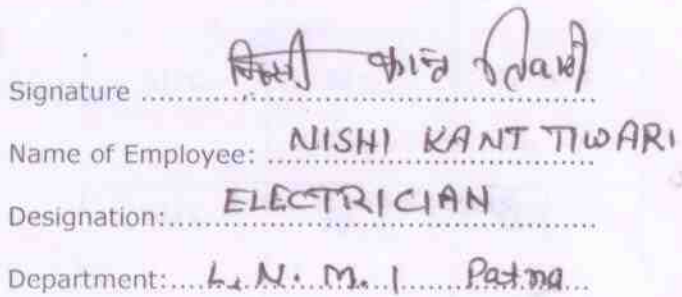 Signature ..... निशी कान्त तिवारी
Name of Employee: NISHI KANT TIWARI
Designation: ELECTRICIAN
Department: L. N. M. I Patna